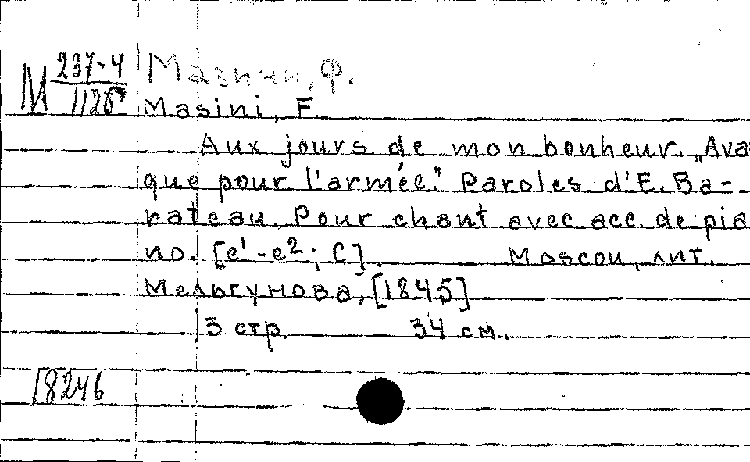 М 237-4
1126
Мазини, Ф.
Masini, F.
Aux jours de mon bonheur. „Ava
que pour l'armée." Paroles d'E. Ba-
rateau. Pour chant avec acc. de pia
no. [e¹-e²; C]. Moscou, лит.
Мельгунова, [1845]
3 стр. 34 см.
18246